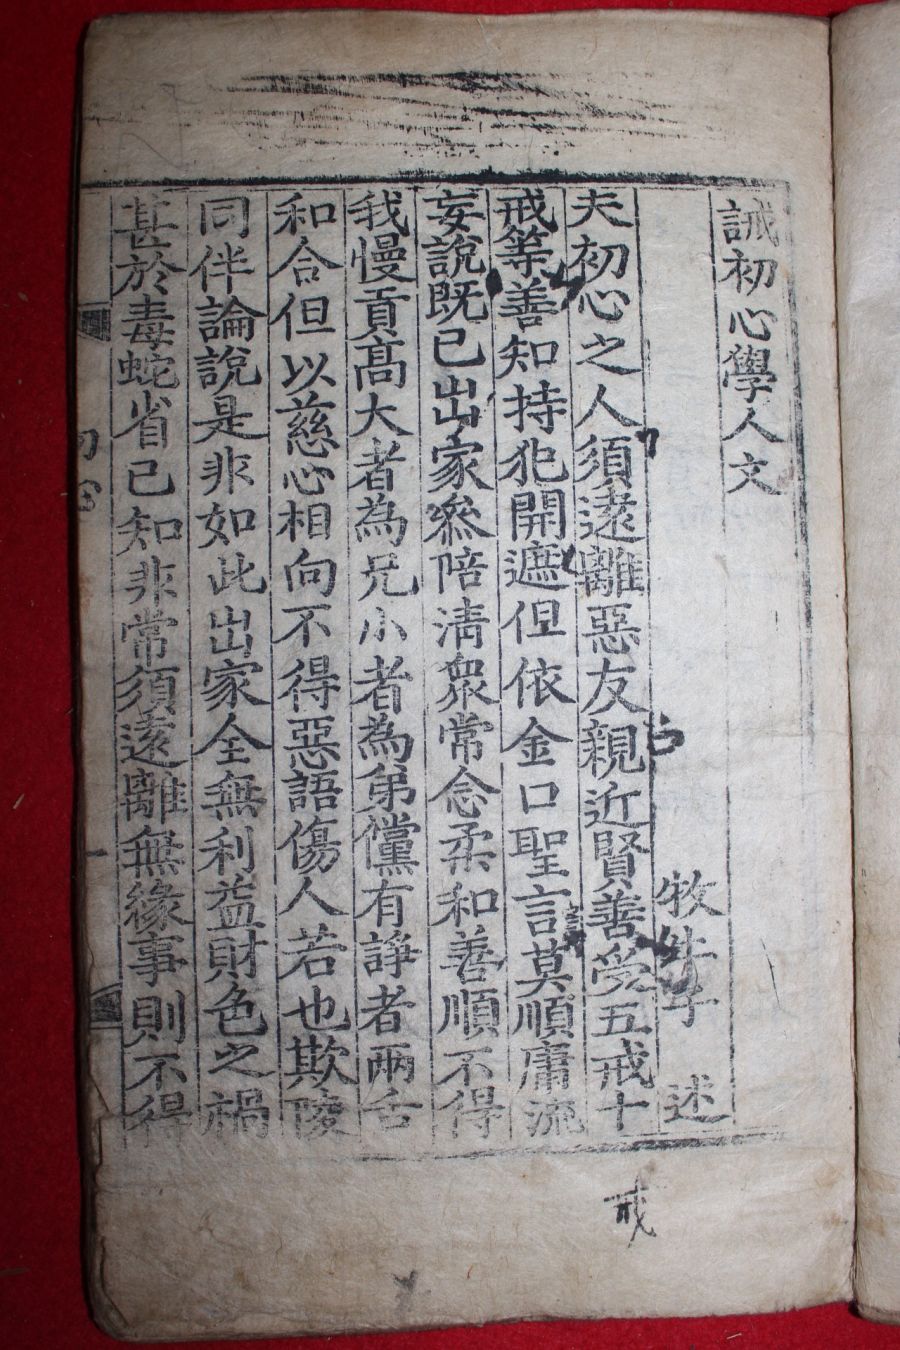 誡初心學人文
牧牛子 述
夫初心之人須遠離惡友親近賢善受五戒十
戒等善知持犯開遮但依金口聖言莫順庸流
妄說既已出家叅陪清衆常念柔和善順不得
我慢貢高大者為兄小者為弟儻有諍者兩舌
和合但以慈心相向不得惡語傷人若也欺陵
同伴論說是非如此出家全無利益財色之禍
甚於毒蛇省已知非常須遠離無緣事則不得
初心
一
戒